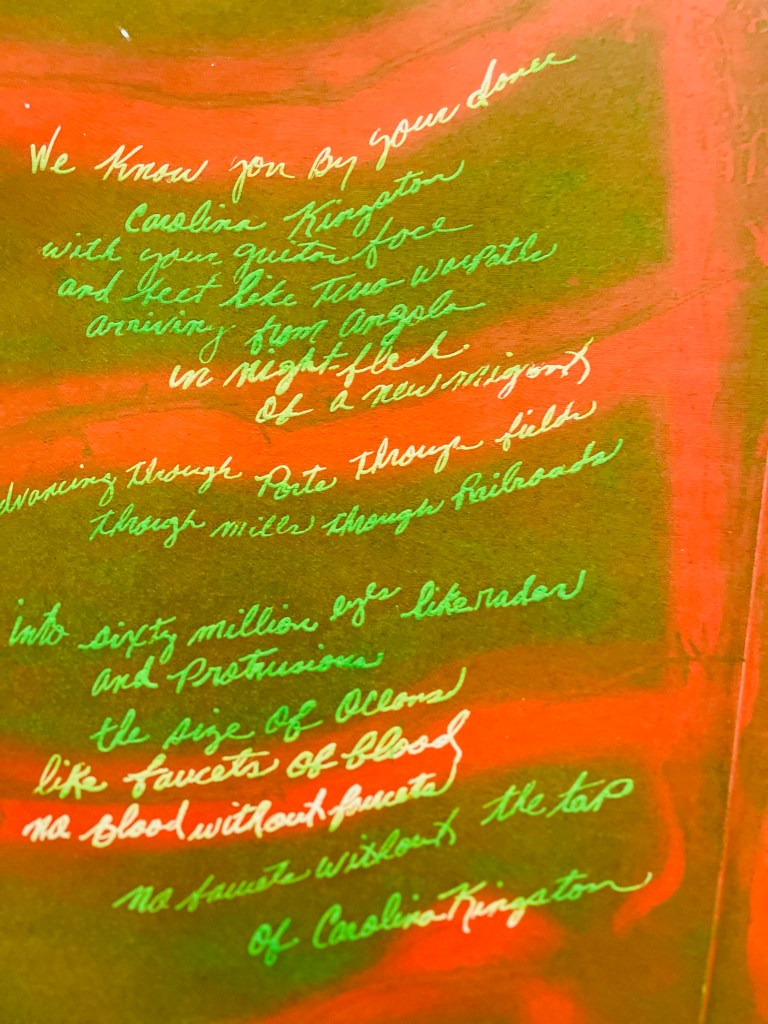 We Know you By your
Carolina Kingston
with your guitar face
and feet like Tina Warpath
arriving from Angola
in night-flesh
of a new migrant
dvancing through Ports through fields
through mills through Railroads
into sixty million eyes like radar
and Protrusions
the size of Oceans
like faucets of blood
no blood without faucets
no faucets without the tap
of Carolina Kingston